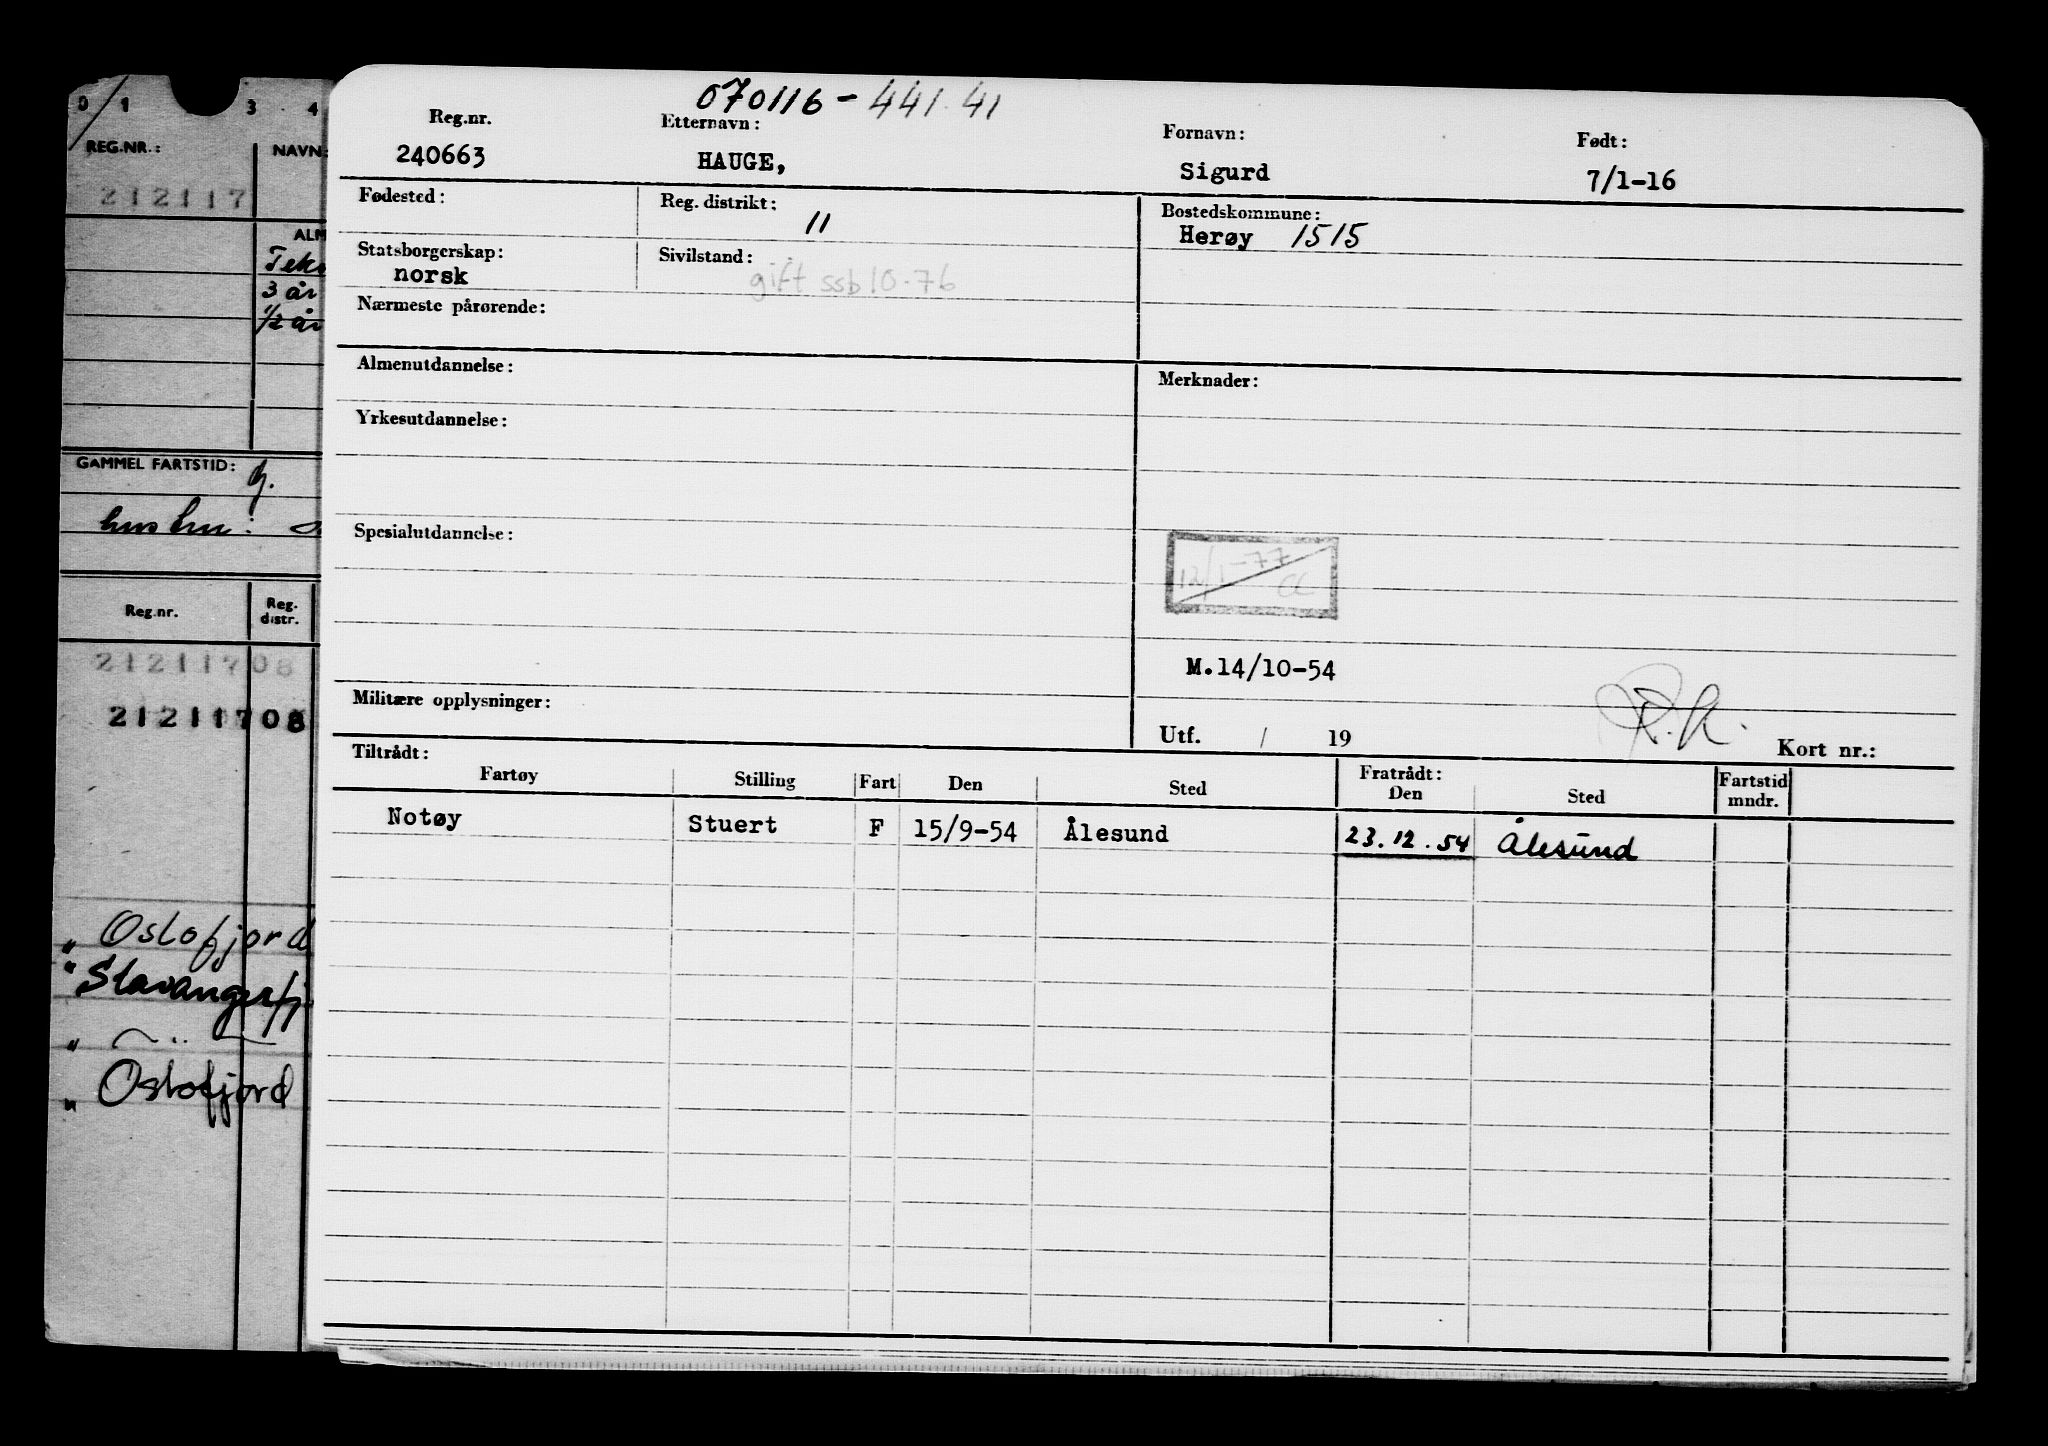 0 1 3 4
REG.NR.: NAVN:
212117
ALM
3 år
1/2 år
GAMMEL FARTSTID:
Reg.nr. Reg. distr.
21211708
21211708
" Oslofjord
" Stavangerfj
"
" Oslofjord
070116-441 41
Reg.nr. Etternavn: Fornavn: Født:
240663 HAUGE, Sigurd 7/1-16
Fødested: Reg. distrikt: 11 Bostedskommune:
Herøy 1515
Statsborgerskap: Sivilstand:
norsk gift ssb 10-76
Nærmeste pårørende:
Almenutdannelse: Merknader:
Yrkesutdannelse:
Spesialutdannelse:
12/1-77
M.14/10-54
Militære opplysninger:
Utf. / 19 Kort nr.:
Tiltrådt: Fratrådt:
Fartøy Stilling Fart Den Sted Den Sted Fartstid mndr.
Notøy Stuert F 15/9-54 Ålesund 23.12.54 Ålesund